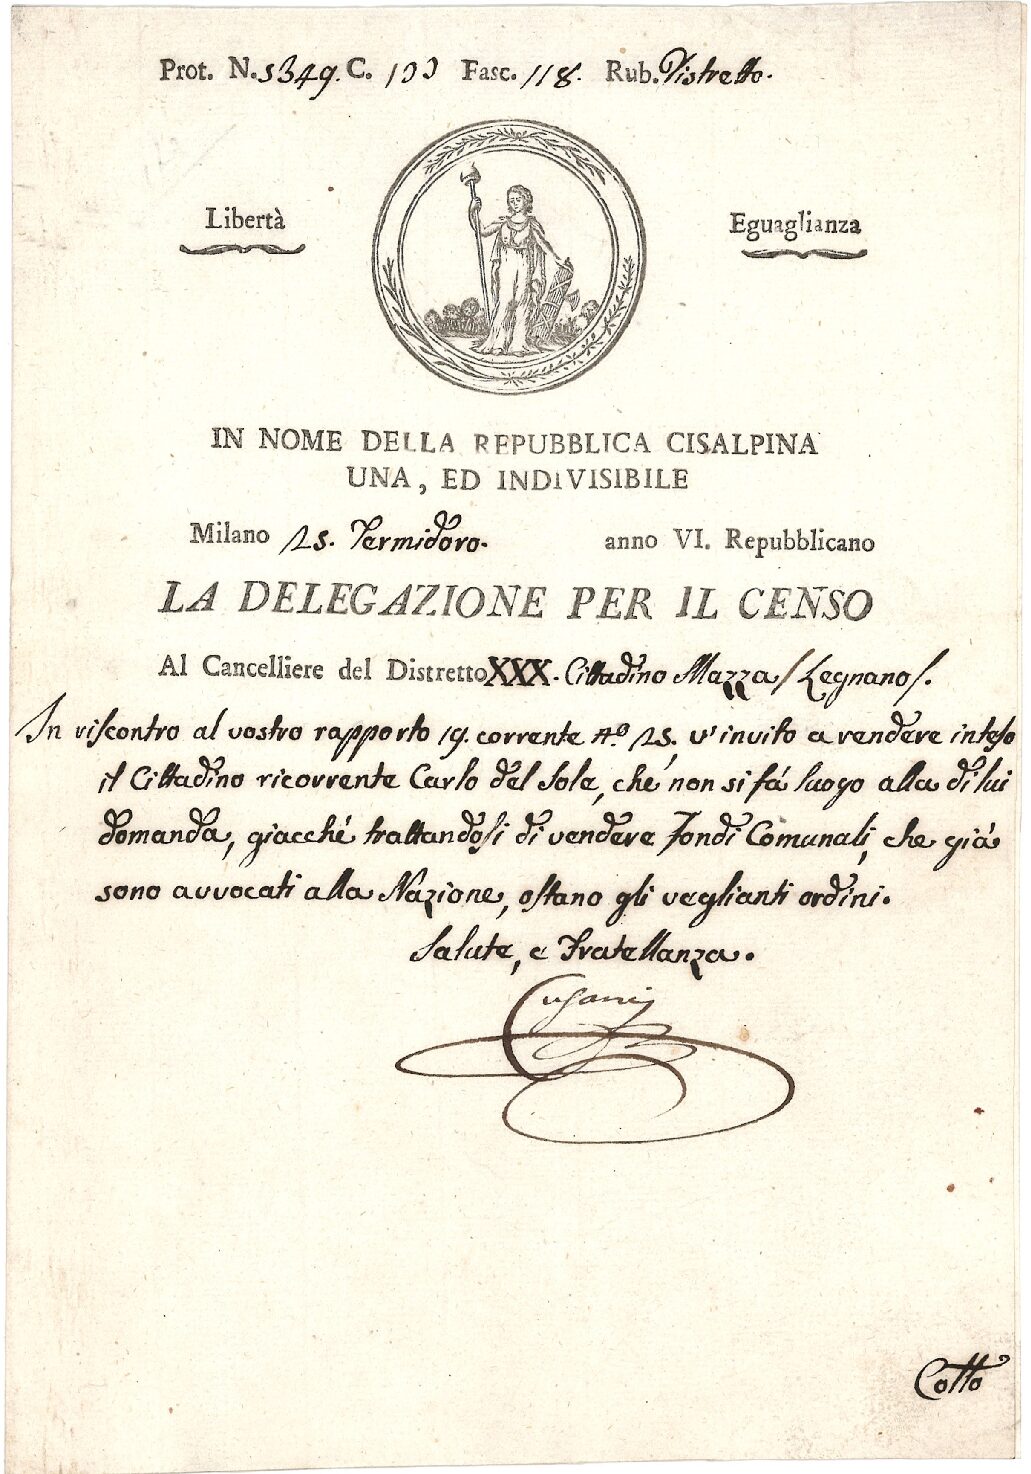 Prot. N. 5349. C. 133 Fasc. 118. Rub. Distretto.
Libertà Eguaglianza
IN NOME DELLA REPUBBLICA CISALPINA
UNA, ED INDIVISIBILE
Milano 25. Termidoro. anno VI. Repubblicano
LA DELEGAZIONE PER IL CENSO
Al Cancelliere del Distretto XXX. Cittadino Mazza / Legnano /.
In riscontro al vostro rapporto 19. corrente N.º 25. v'invito a rendere inteso
il Cittadino ricorrente Carlo del Sole, ché non si fá luogo alla di lui
domanda, giacché trattandosi di vendere Fondi Comunali, che già
sono avvocati alla Nazione, ostano gli veglianti ordini.
Salute, e Fratellanza.